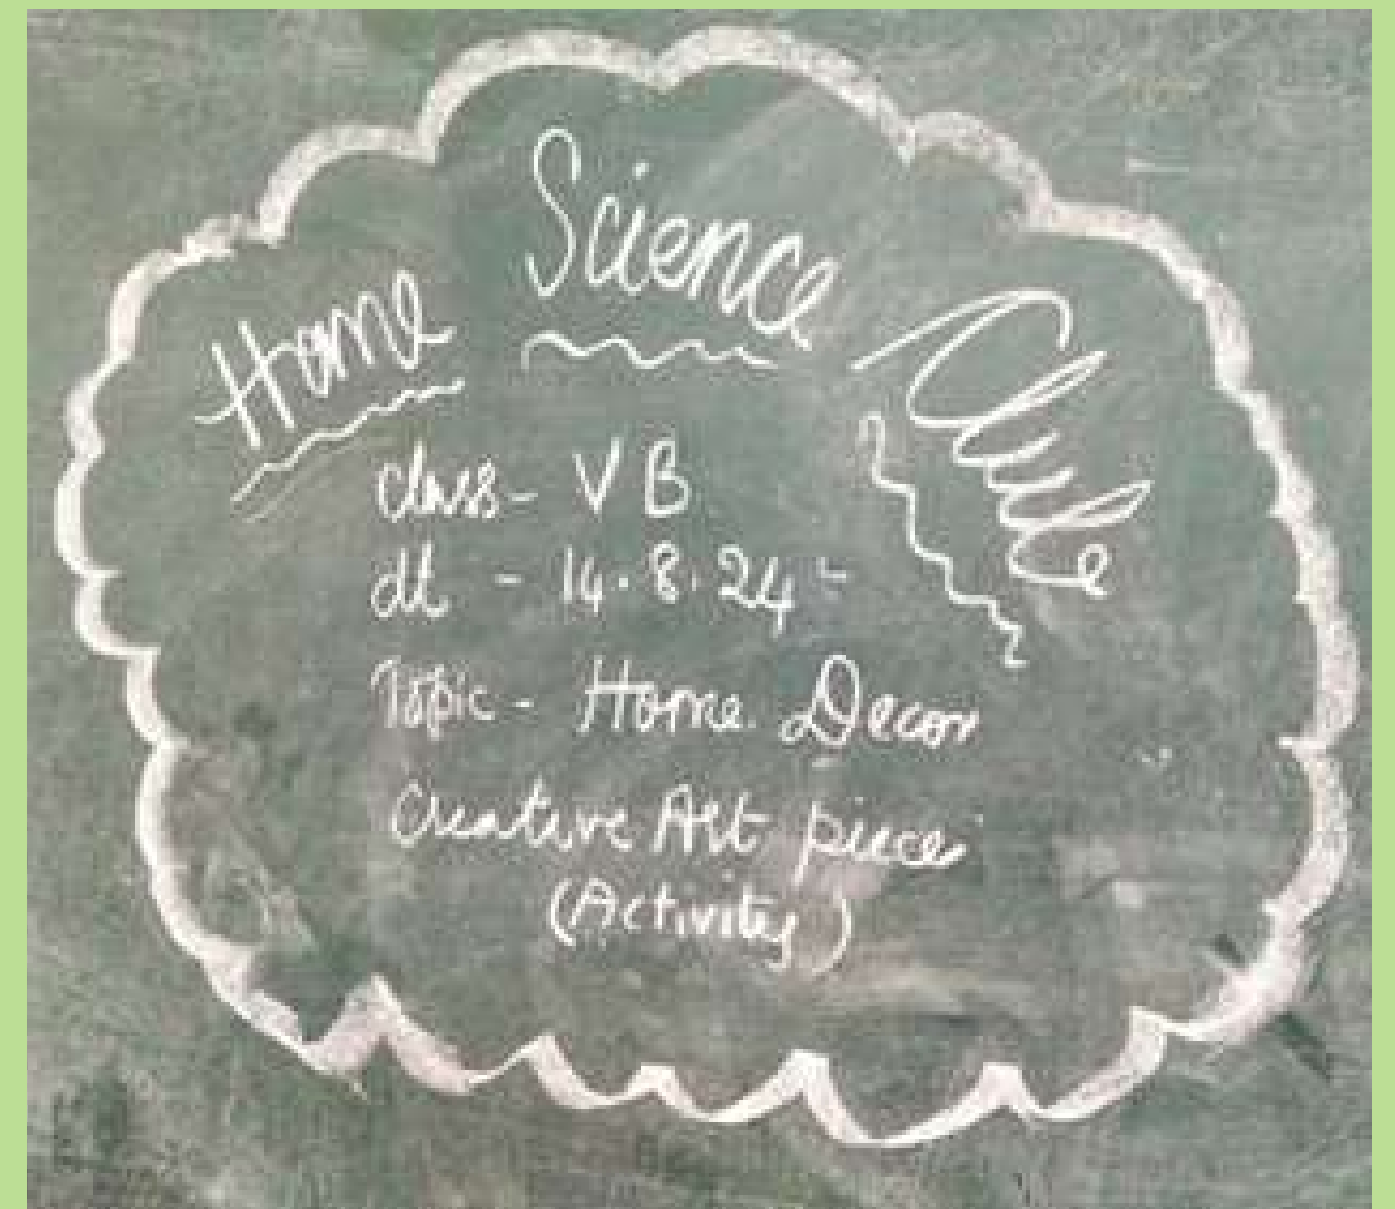 Home Science Club
class - V B
dt - 14.8.24
Topic - Home Decor
Creative Art piece
(Activity)